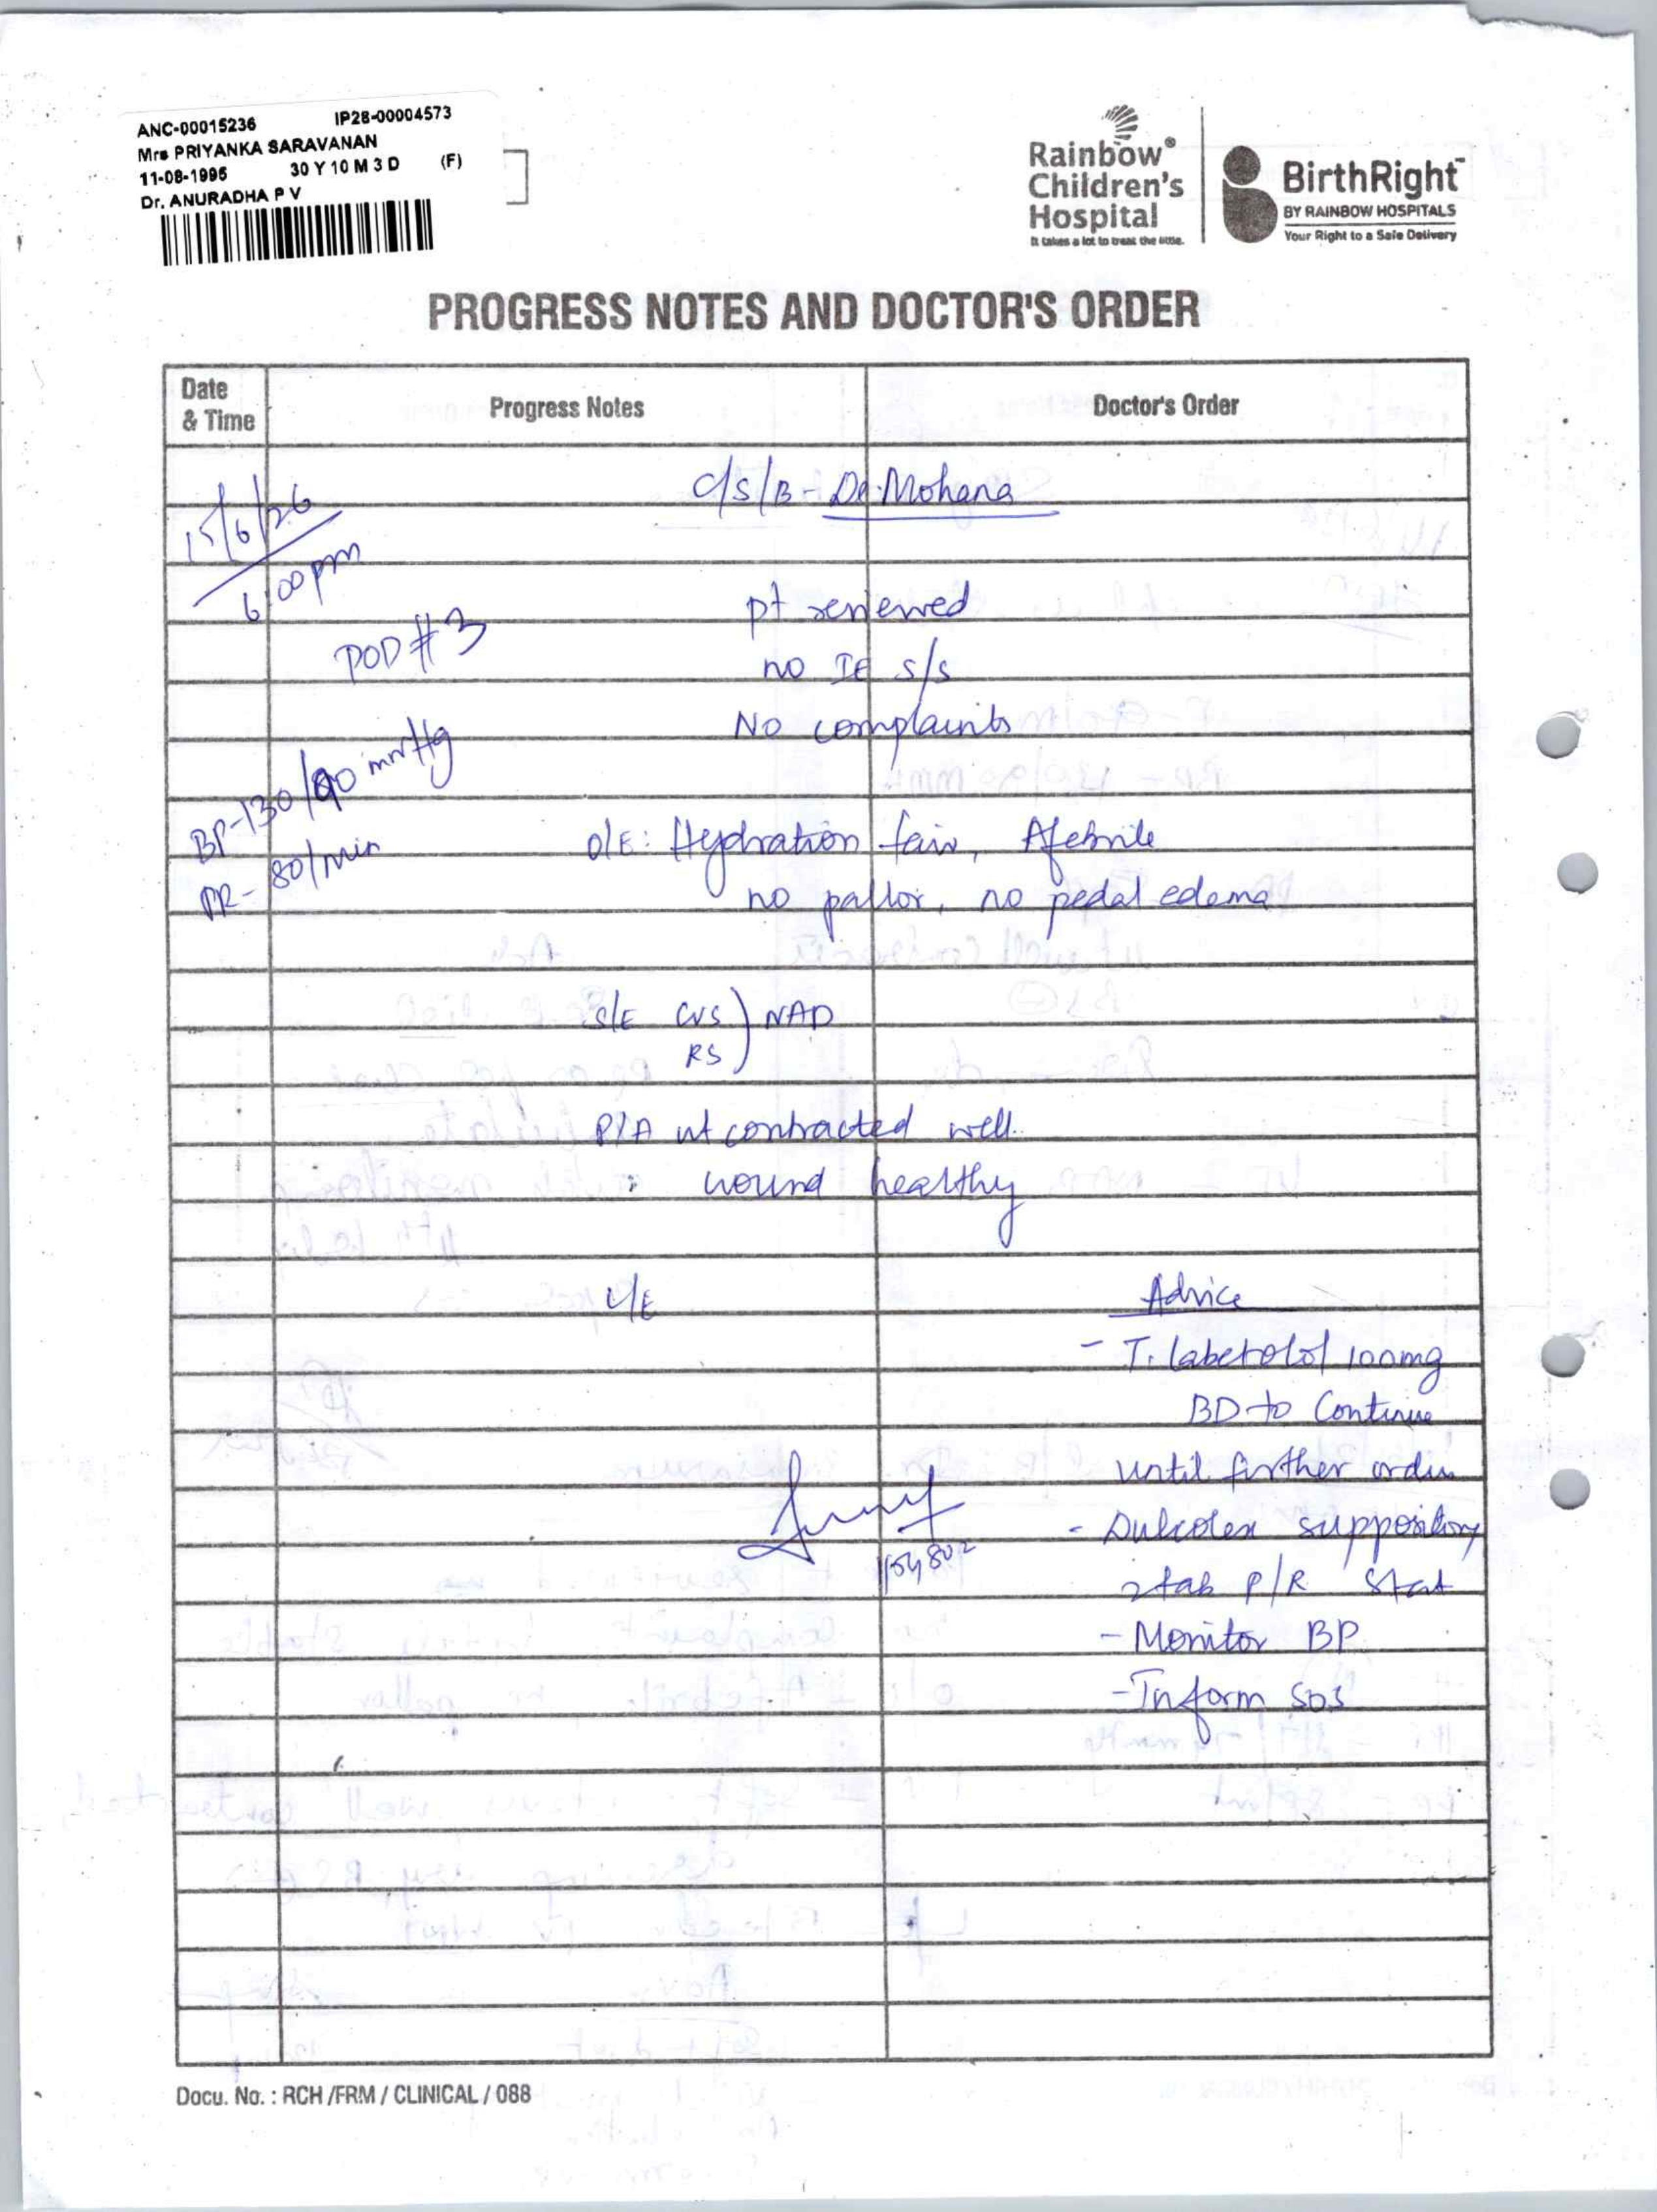 ANC-00015236 IP28-00004573
Mrs PRIYANKA SARAVANAN
11-08-1995 30 Y 10 M 3 D (F)
Dr. ANURADHA P V
Rainbow®
Children's
Hospital
It takes a lot to treat the little.
BirthRight™
BY RAINBOW HOSPITALS
Your Right to a Safe Delivery
PROGRESS NOTES AND DOCTOR'S ORDER
Date
& Time
Progress Notes
Doctor's Order
15/6/26
6:00pm
C/S/B - Dr. Mohana
POD #3
pt reviewed
no IE s/s
No complaints
BP-130/90 mmHg
PR- 80/min
O/E: Hydration fair, Afebrile
no pallor, no pedal edema
S/E CVS ) NAD
RS
P/A ut contracted well.
wound healthy
L/E
Advice
- T. labetolol 100mg
BD to Continue
until further order
- Dulcolex suppository
2 tab P/R Stat
- Monitor BP
- Inform SOS
Docu. No. : RCH /FRM / CLINICAL / 088